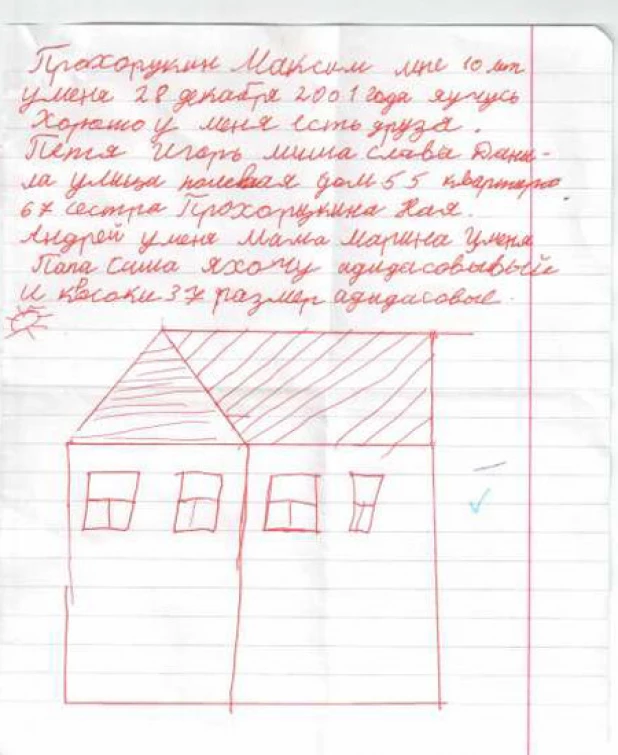 Прохорукин Максим мне 10 лет
у меня 28 декабря 2001 года я учусь
Хорошо у меня есть друза.
Петя Игорь миша слава Дани-
ла улица полевая дом 55 квартира
67 сестра Прохорукина Ная.
Андрей у меня Мама Марина У меня
Папа Саша я хочу адидасовывый
и кросоки 37 размер адидасовые.